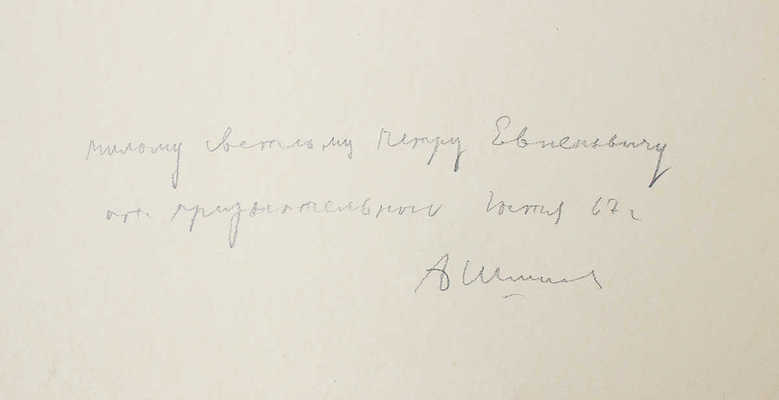 милому светлому Петру Евгеньевичу
от признательного Гостя 67 г